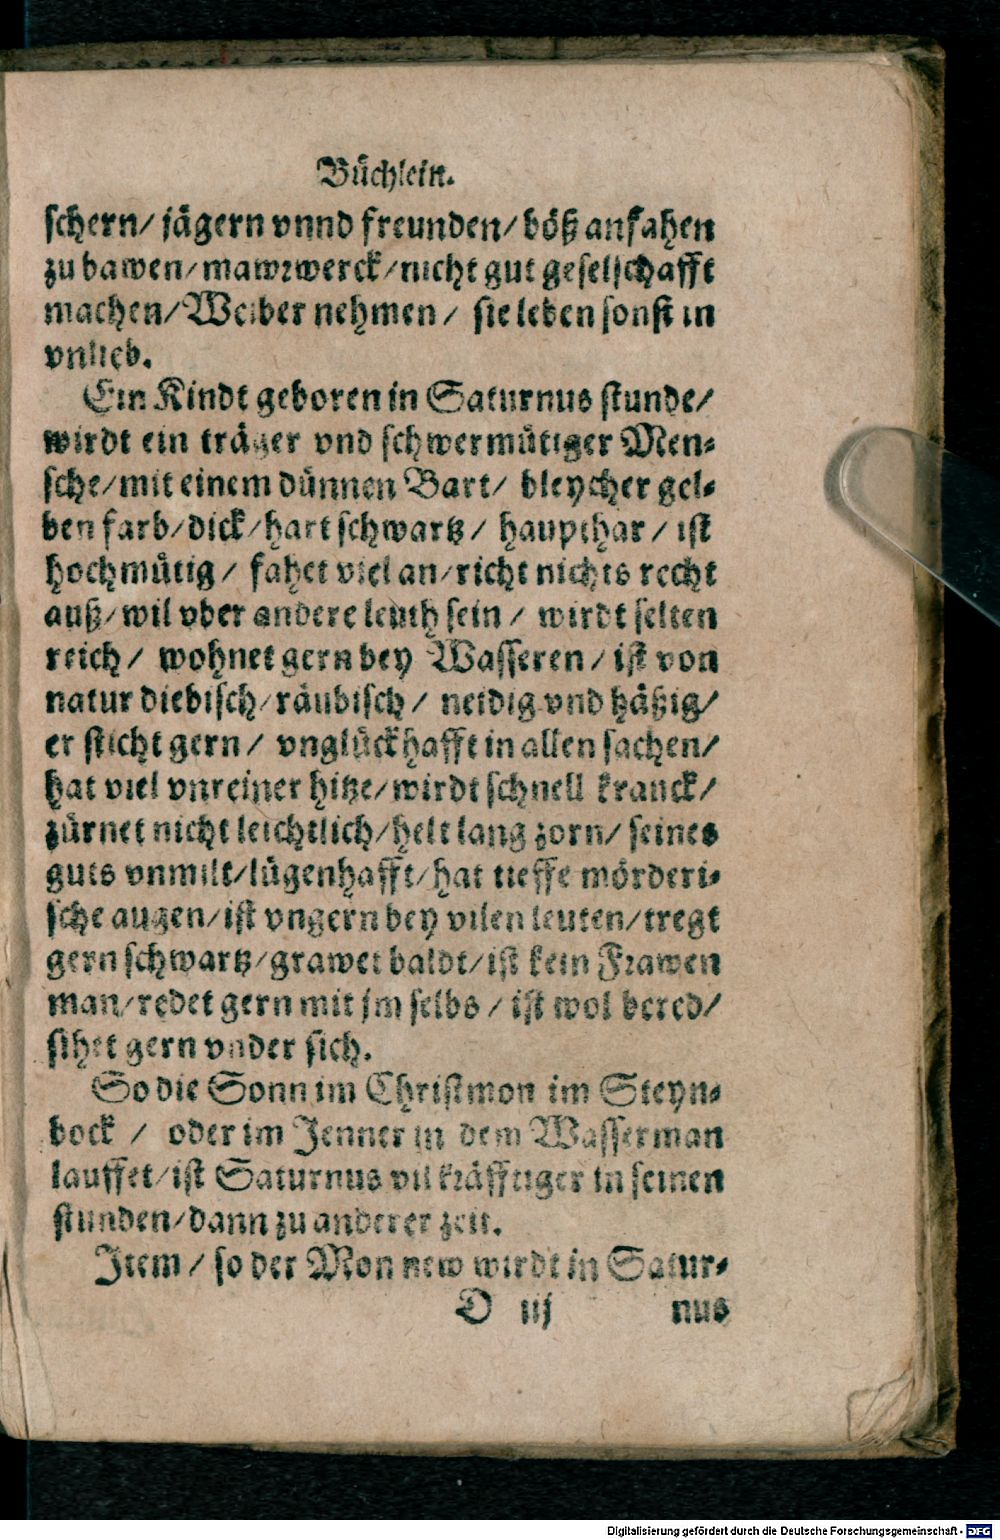 Büchlein.
schern/ jägern vnnd freunden/ böß anfahen
zu bawen/ mawrwerck/ nicht gut gesellschafft
machen/ Weiber nehmen/ sie leben sonst in
vnlieb.
Ein Kindt geboren in Saturnus stunde/
wirdt ein träger vnd schwermütiger Men-
sche/ mit einem dünnen Bart/ bleycher gel-
ben farb/ dick/ hart schwartz/ haupthar/ ist
hochmütig/ fahet viel an/ richt nichts recht
auß/ wil vber andere leuth sein/ wirdt selten
reich/ wohnet gern bey Wasseren/ ist von
natur diebisch/ räubisch/ neidig vnd häßig/
er sticht gern/ vnglückhafft in allen sachen/
hat viel vnreiner hitze/ wirdt schnell kranck/
zürnet nicht leichtlich/ helt lang zorn/ seines
guts vnmilt/ lügenhafft/ hat tieffe mörderi-
sche augen/ ist vngern bey vilen leuten/ tregt
gern schwartz/ grawet baldt/ ist kein Frawen
man/ redet gern mit jm selbs/ ist wol bered/
sihet gern vnder sich.
So die Sonn im Christmon im Steyn-
bock/ oder im Jenner in dem Wasserman
lauffet/ ist Saturnus vil kräfftiger in seinen
stunden/ dann zu anderer zeit.
Item/ so der Mon new wirdt in Satur-
D iij nus
Digitalisierung gefördert durch die Deutsche Forschungsgemeinschaft - DFG